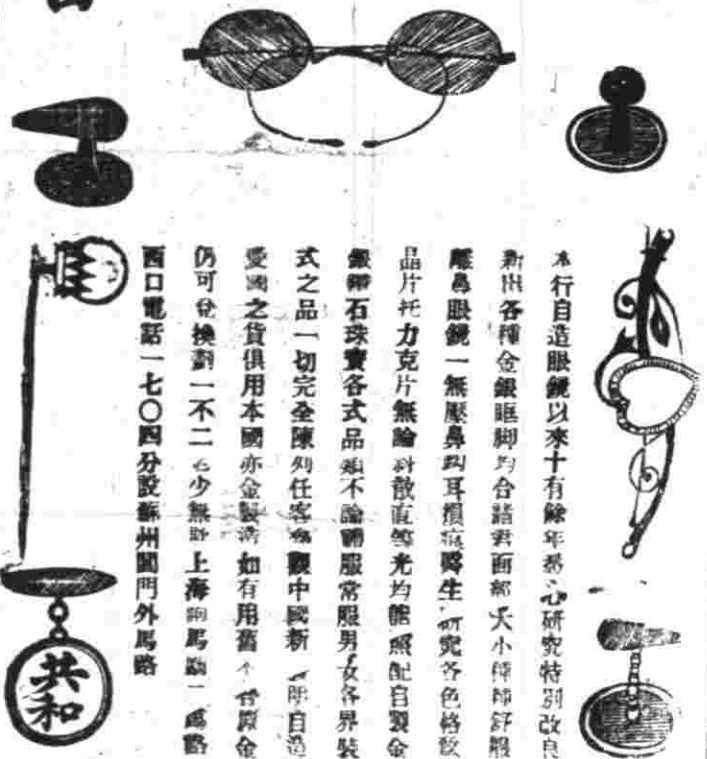 本行自造眼鏡以來十有餘年悉心研究特別改良
新出各種金銀眶脚均合諸君面部大小種種舒服
離鼻眼鏡一無壓鼻鈎耳損痕醫生研究各色格致
晶片托力克片無論斜散直等光均能照配自製金
銀鑽石珠寶各式品類不論禮服常服男女各界裝
式之品一切完全陳列任客觀中國新明自造
愛國之貨俱用本國赤金製造如有用舊金
仍可兌換劃一不二少無上海馬路一馬路
西口電話一七〇四分設蘇州閶門外馬路
共和